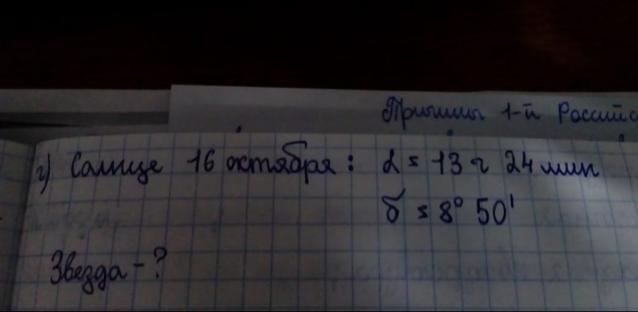 Причины 1-й Россий
г) Солнце 16 октября: α = 13 ч 24 мин
δ = 8° 50'
Звезда - ?